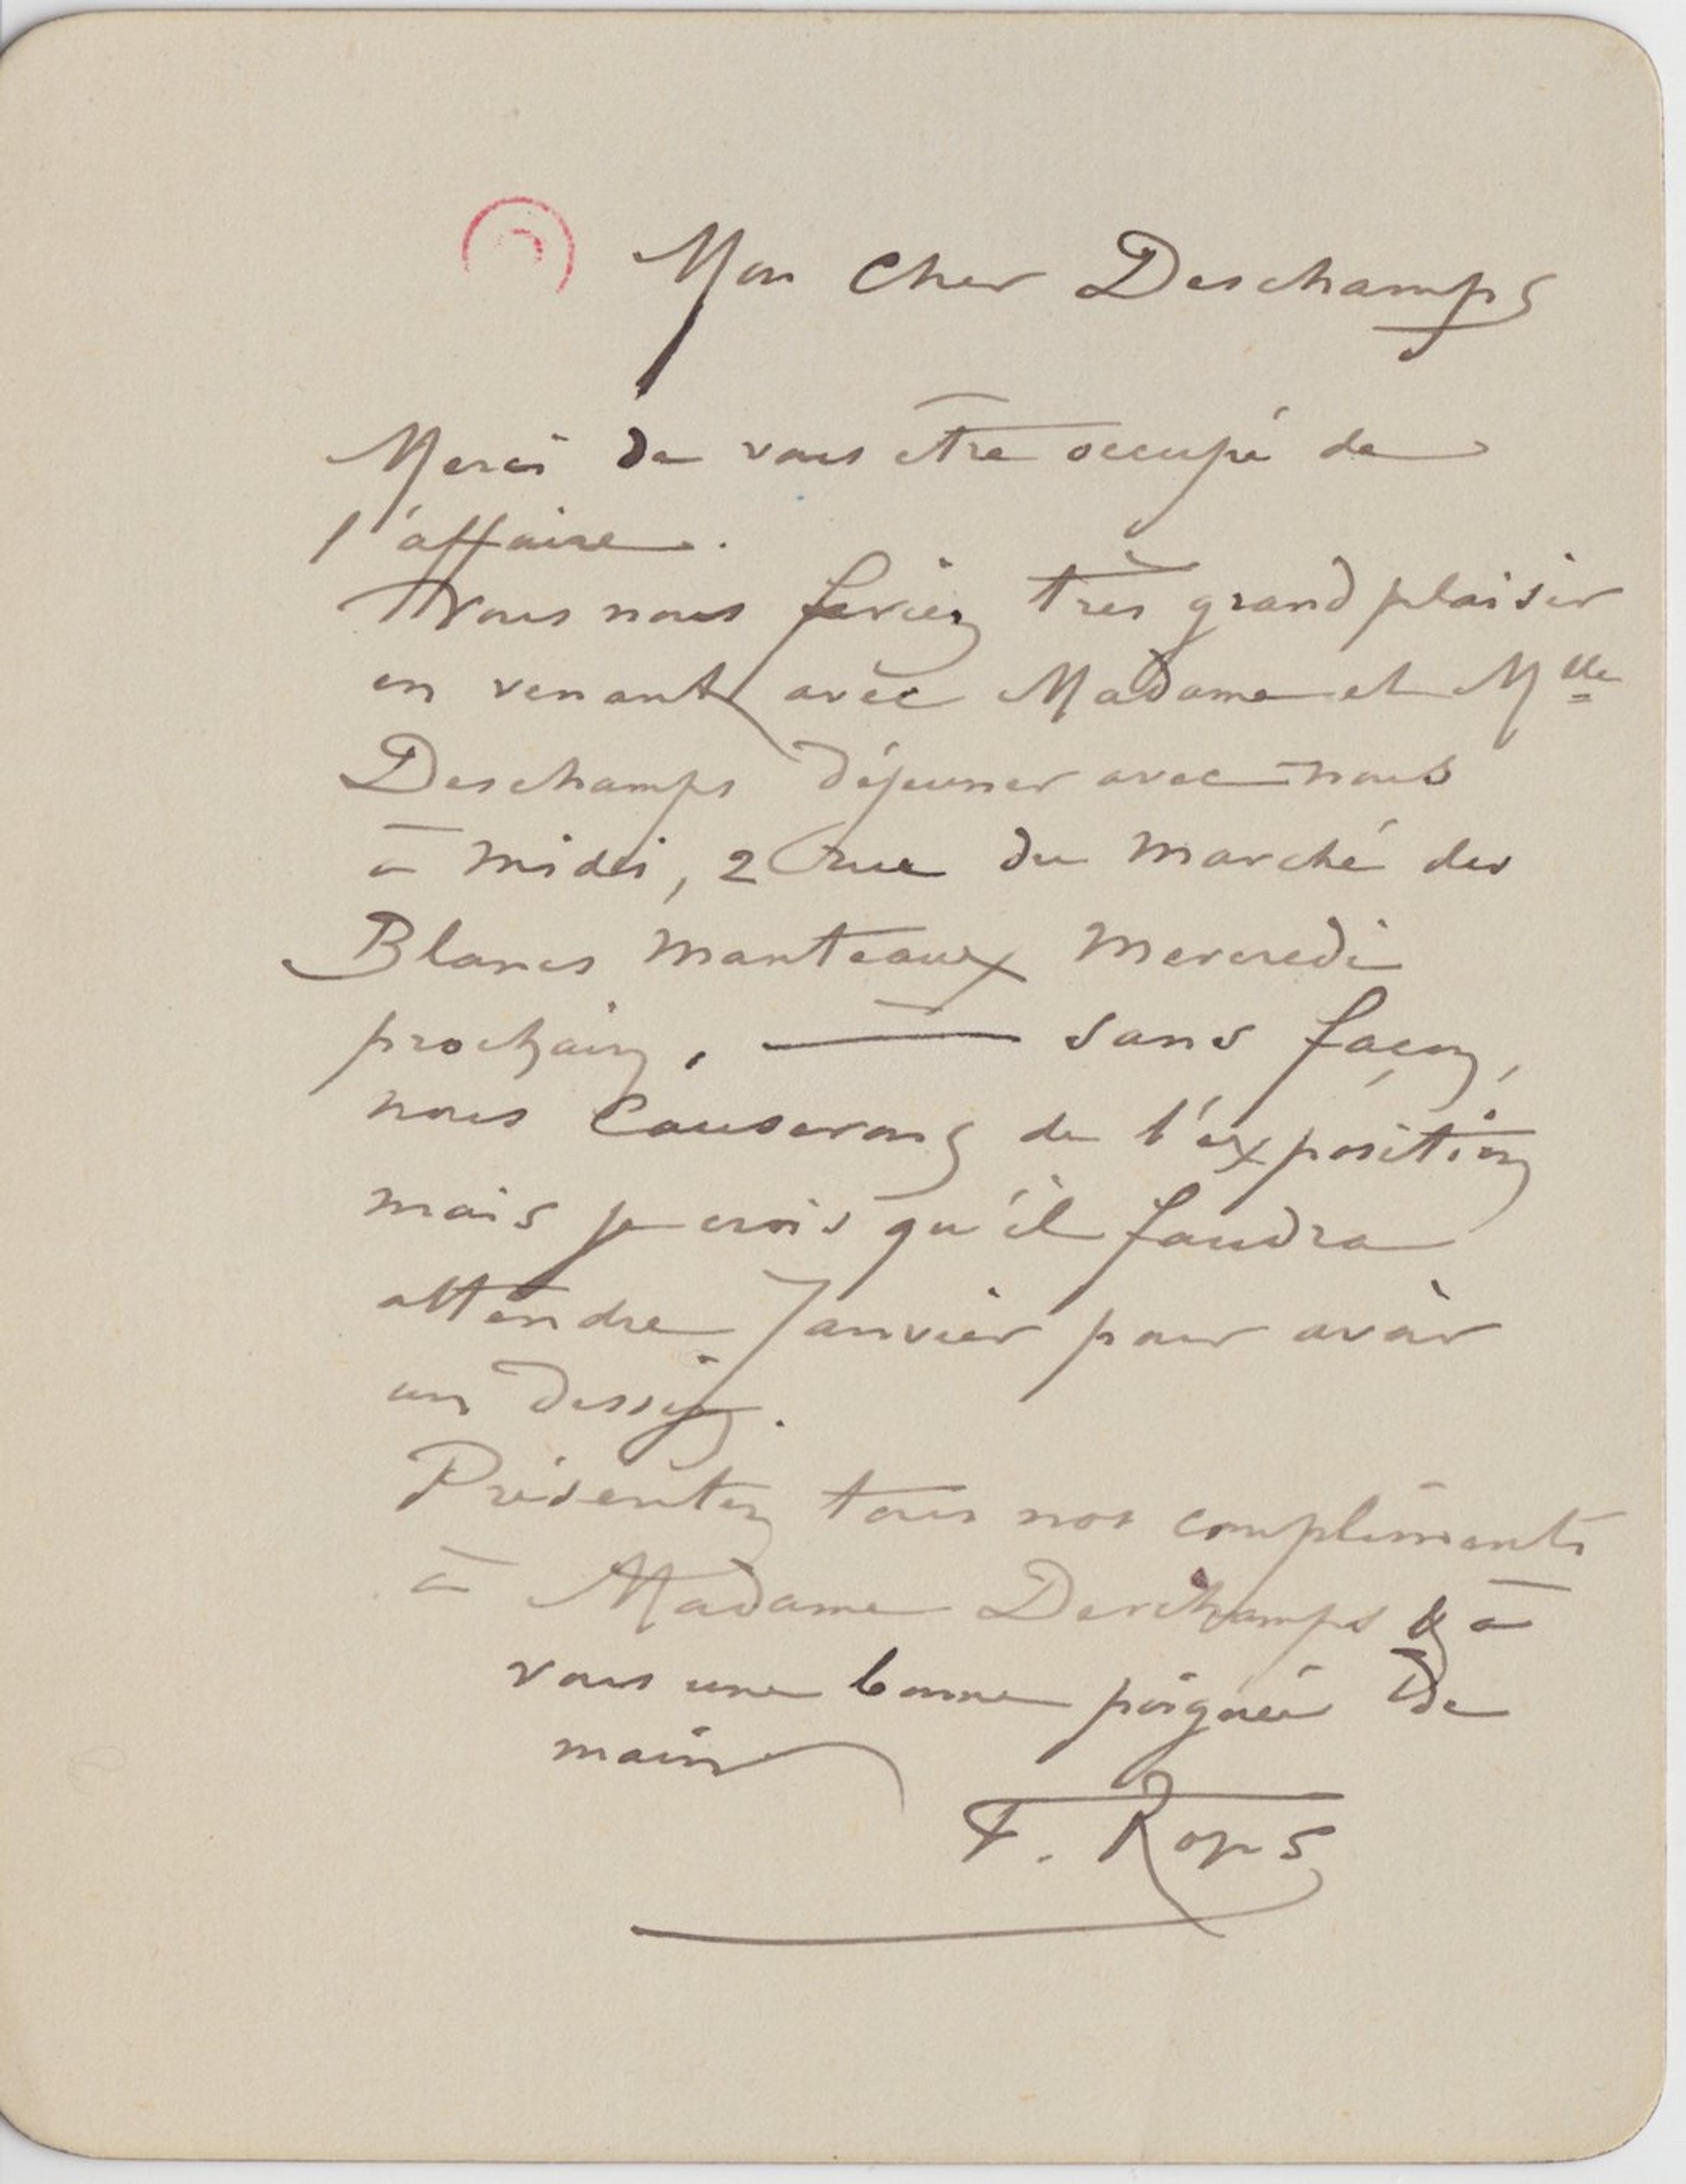 Mon Cher Deschamps
Merci de vous être occupé de
l'affaire.
Vous nous feriez très grand plaisir
en venant avec Madame et Mlle
Deschamps déjeuner avec nous
à midi, 2 rue du Marché des
Blancs Manteaux Mercredi
prochain, — sans façon,
nous causerons de l'exposition
mais je crois qu'il faudra
attendre Janvier pour avoir
un dessin.
Présentez tous nos compliments
à Madame Deschamps & à
vous une bonne poignée de
main
F. Rops